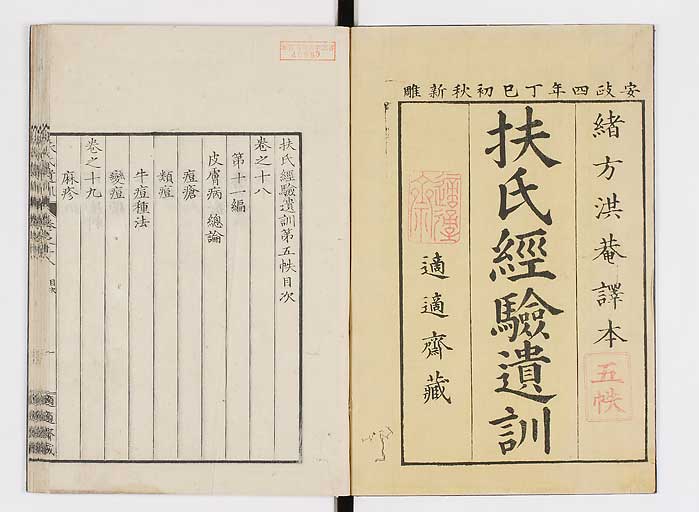 安政四年丁巳初秋新雕
緒方洪菴譯本
五帙
扶氏經驗遺訓
適適齋藏
扶氏經驗遺訓第五帙目次
卷之十八
第十一編
皮膚病 總論
痘瘡
類痘
牛痘種法
變痘
卷之十九
麻疹
目次
一
適適齋藏